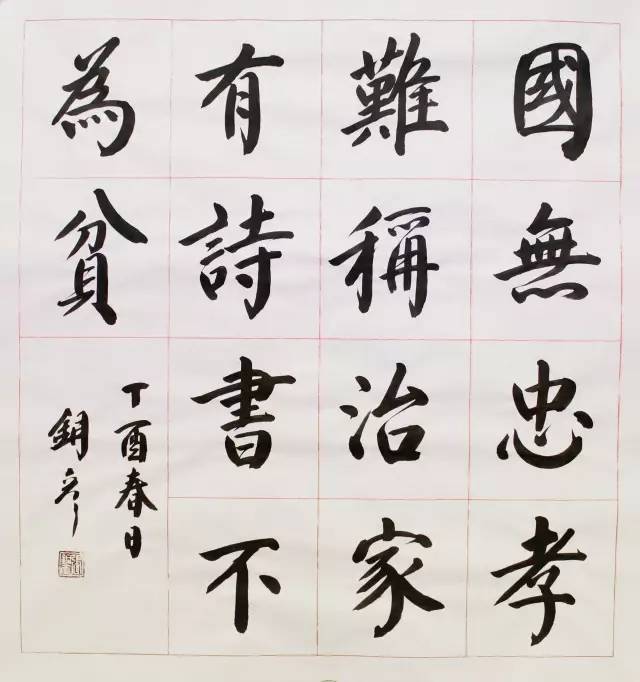 國無忠孝
難稱治家
有詩書不
為貧
丁酉春日